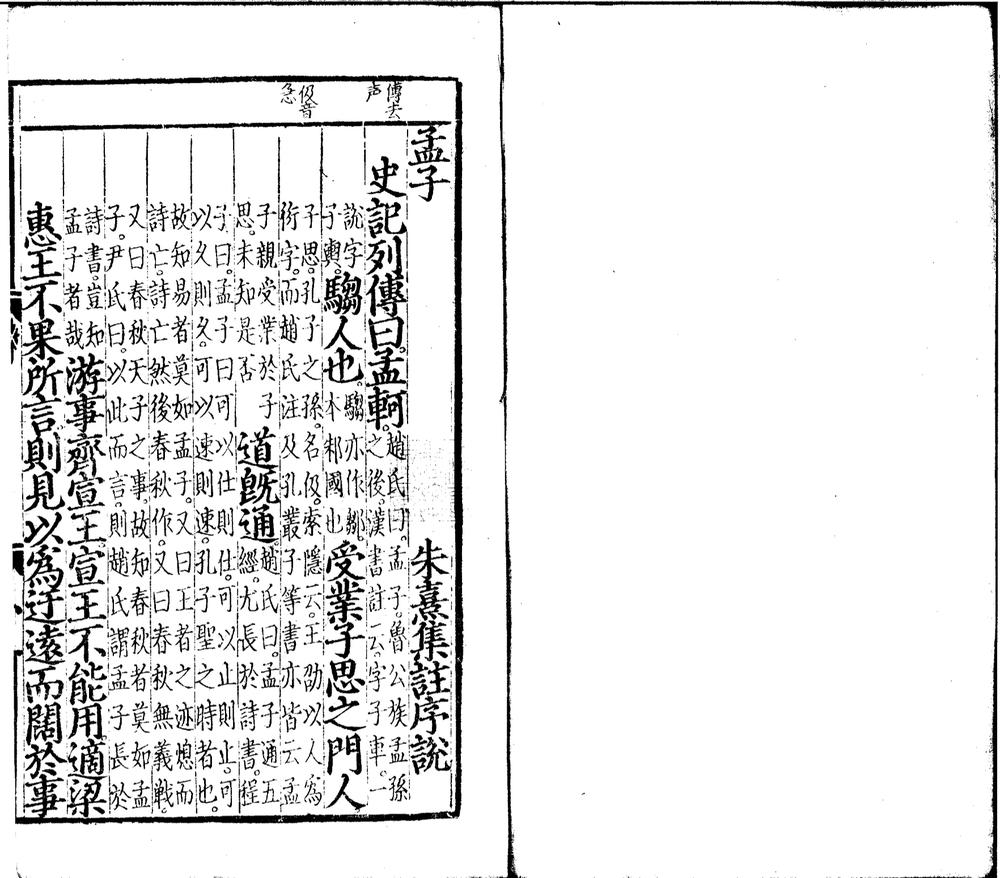 傳去
声
伋音
急
孟子 朱熹集註序說
史記列傳曰。孟軻。趙氏曰。孟子。魯公族孟孫
之後。漢書註云。字子車。一
說字
子輿。騶人也。騶亦作鄒。
本邾國也 受業子思之門人
子思。孔子之孫。名伋。索隱云。王劭以人為
衍字。而趙氏注及孔叢子等書亦皆云孟
子親受業於子
思。未知是否 道旣通。趙氏曰。孟子通五
經。尤長於詩書。程
子曰。孟子曰可以仕則仕。可以止則止。可
以久則久。可以速則速。孔子聖之時者也。
故知易者莫如孟子。又曰王者之迹熄而
詩亡。詩亡然後春秋作。又曰春秋無義戰。
又曰春秋天子之事。故知春秋者莫如孟
子。尹氏曰。以此而言。則趙氏謂孟子長於
詩書。豈知
孟子者哉 游事齊宣王。宣王不能用。適梁
惠王不果所言。則見以爲迂遠而闊於事